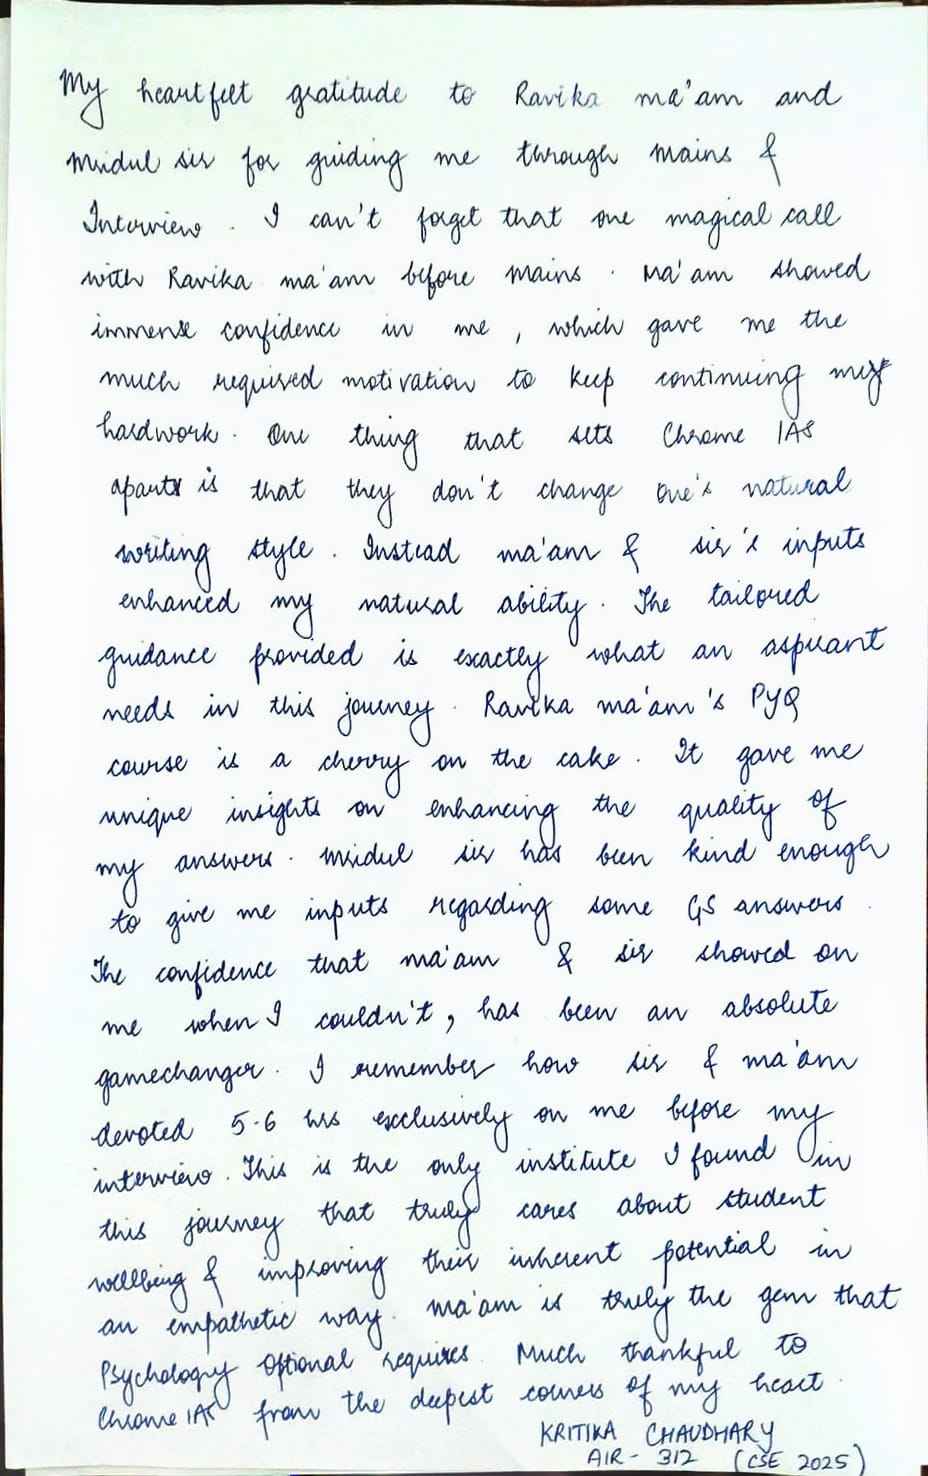 My heartfelt gratitude to Ravika ma'am and
Mridul sir for guiding me through Mains &
Interview. I can't forget that one magical call
with Ravika ma'am before Mains. Ma'am showed
immense confidence in me, which gave me the
much required motivation to keep continuing my
hardwork. One thing that sets Chrome IAS
apart is that they don't change one's natural
writing style. Instead ma'am & sir's inputs
enhanced my natural ability. The tailored
guidance provided is exactly what an aspirant
needs in this journey. Ravika ma'am's PYQ
course is a cherry on the cake. It gave me
unique insights on enhancing the quality of
my answers. Mridul sir has been kind enough
to give me inputs regarding some GS answers.
The confidence that ma'am & sir showed on
me when I couldn't, has been an absolute
gamechanger. I remember how sir & ma'am
devoted 5-6 hrs exclusively on me before my
interview. This is the only institute I found in
this journey that truly cares about student
wellbing & improving their inherent potential in
an empathetic way. Ma'am is truly the gem that
Psychology Optional requires. Much thankful to
Chrome IAS from the deepest corners of my heart.
KRITIKA CHAUDHARY
AIR- 312 (CSE 2025)